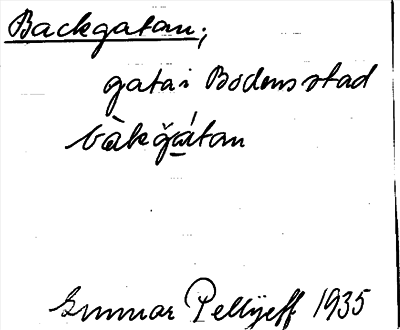 Backgatan;
gata i Bodens stad
bàkǧá̱tan
Gunnar Pellijeff 1935